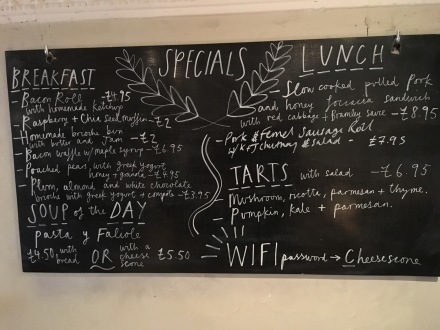 SPECIALS
BREAKFAST
- Bacon Roll - £4.95
with homemade ketchup
- Raspberry + Chia seed muffin - £2
- Homemade brioche bun
with butter and Jam - £2
- Bacon waffle w/ maple syrup - £6.95
- Poached pears, with greek yogurt
honey + granola - £4.95
- Plum, almond, and white chocolate
brioche with greek yogurt + compote - £3.95
SOUP of the DAY
Pasta y Fagiole
£4.50 with bread OR with a cheese scone £5.50
LUNCH
- Slow cooked pulled pork
and honey foccacia sandwich
with red cabbage + Bramley sauce - £8.95
- Pork & fennel Sausage Roll
w/ chutney & salad - £7.95
TARTS with salad - £6.95
- Mushroom, ricotta, parmesan + thyme.
- Pumpkin, kale + parmesan.
WIFI password → Cheesescone